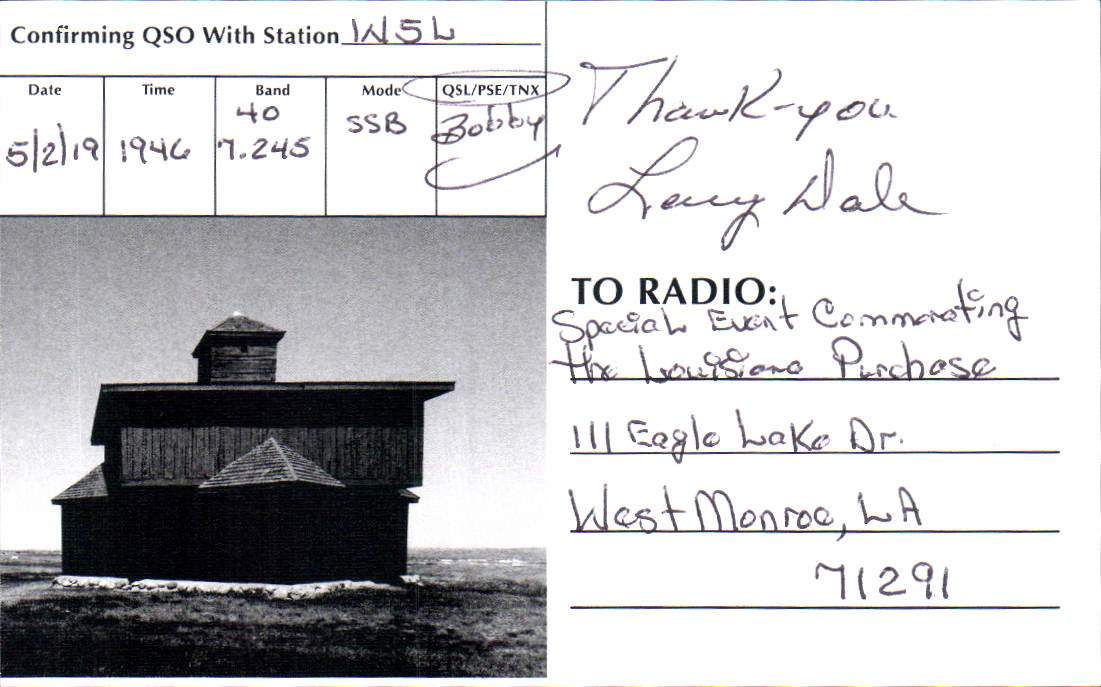 Confirming QSO With Station W5L
Date Time Band Mode QSL/PSE/TNX
40
5/2/19 1946 7.245 SSB Bobby
Thank-you
Larry Dale
TO RADIO:
Special Event Commorating
the Louisiana Purchase
111 Eagle Lake Dr.
West Monroe, LA
71291